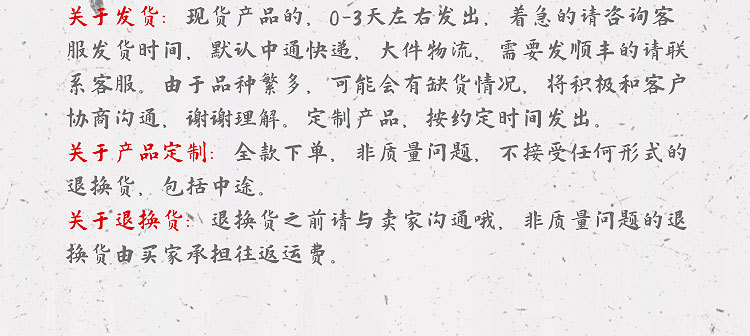 关于发货：现货产品的，0-3天左右发出，着急的请咨询客
服发货时间，默认中通快递，大件物流，需要发顺丰的请联
系客服。由于品种繁多，可能会有缺货情况，将积极和客户
协商沟通，谢谢理解。定制产品，按约定时间发出。
关于产品定制：全款下单，非质量问题，不接受任何形式的
退换货，包括中途。
关于退换货：退换货之前请与卖家沟通哦，非质量问题的退
换货由买家承担往返运费。